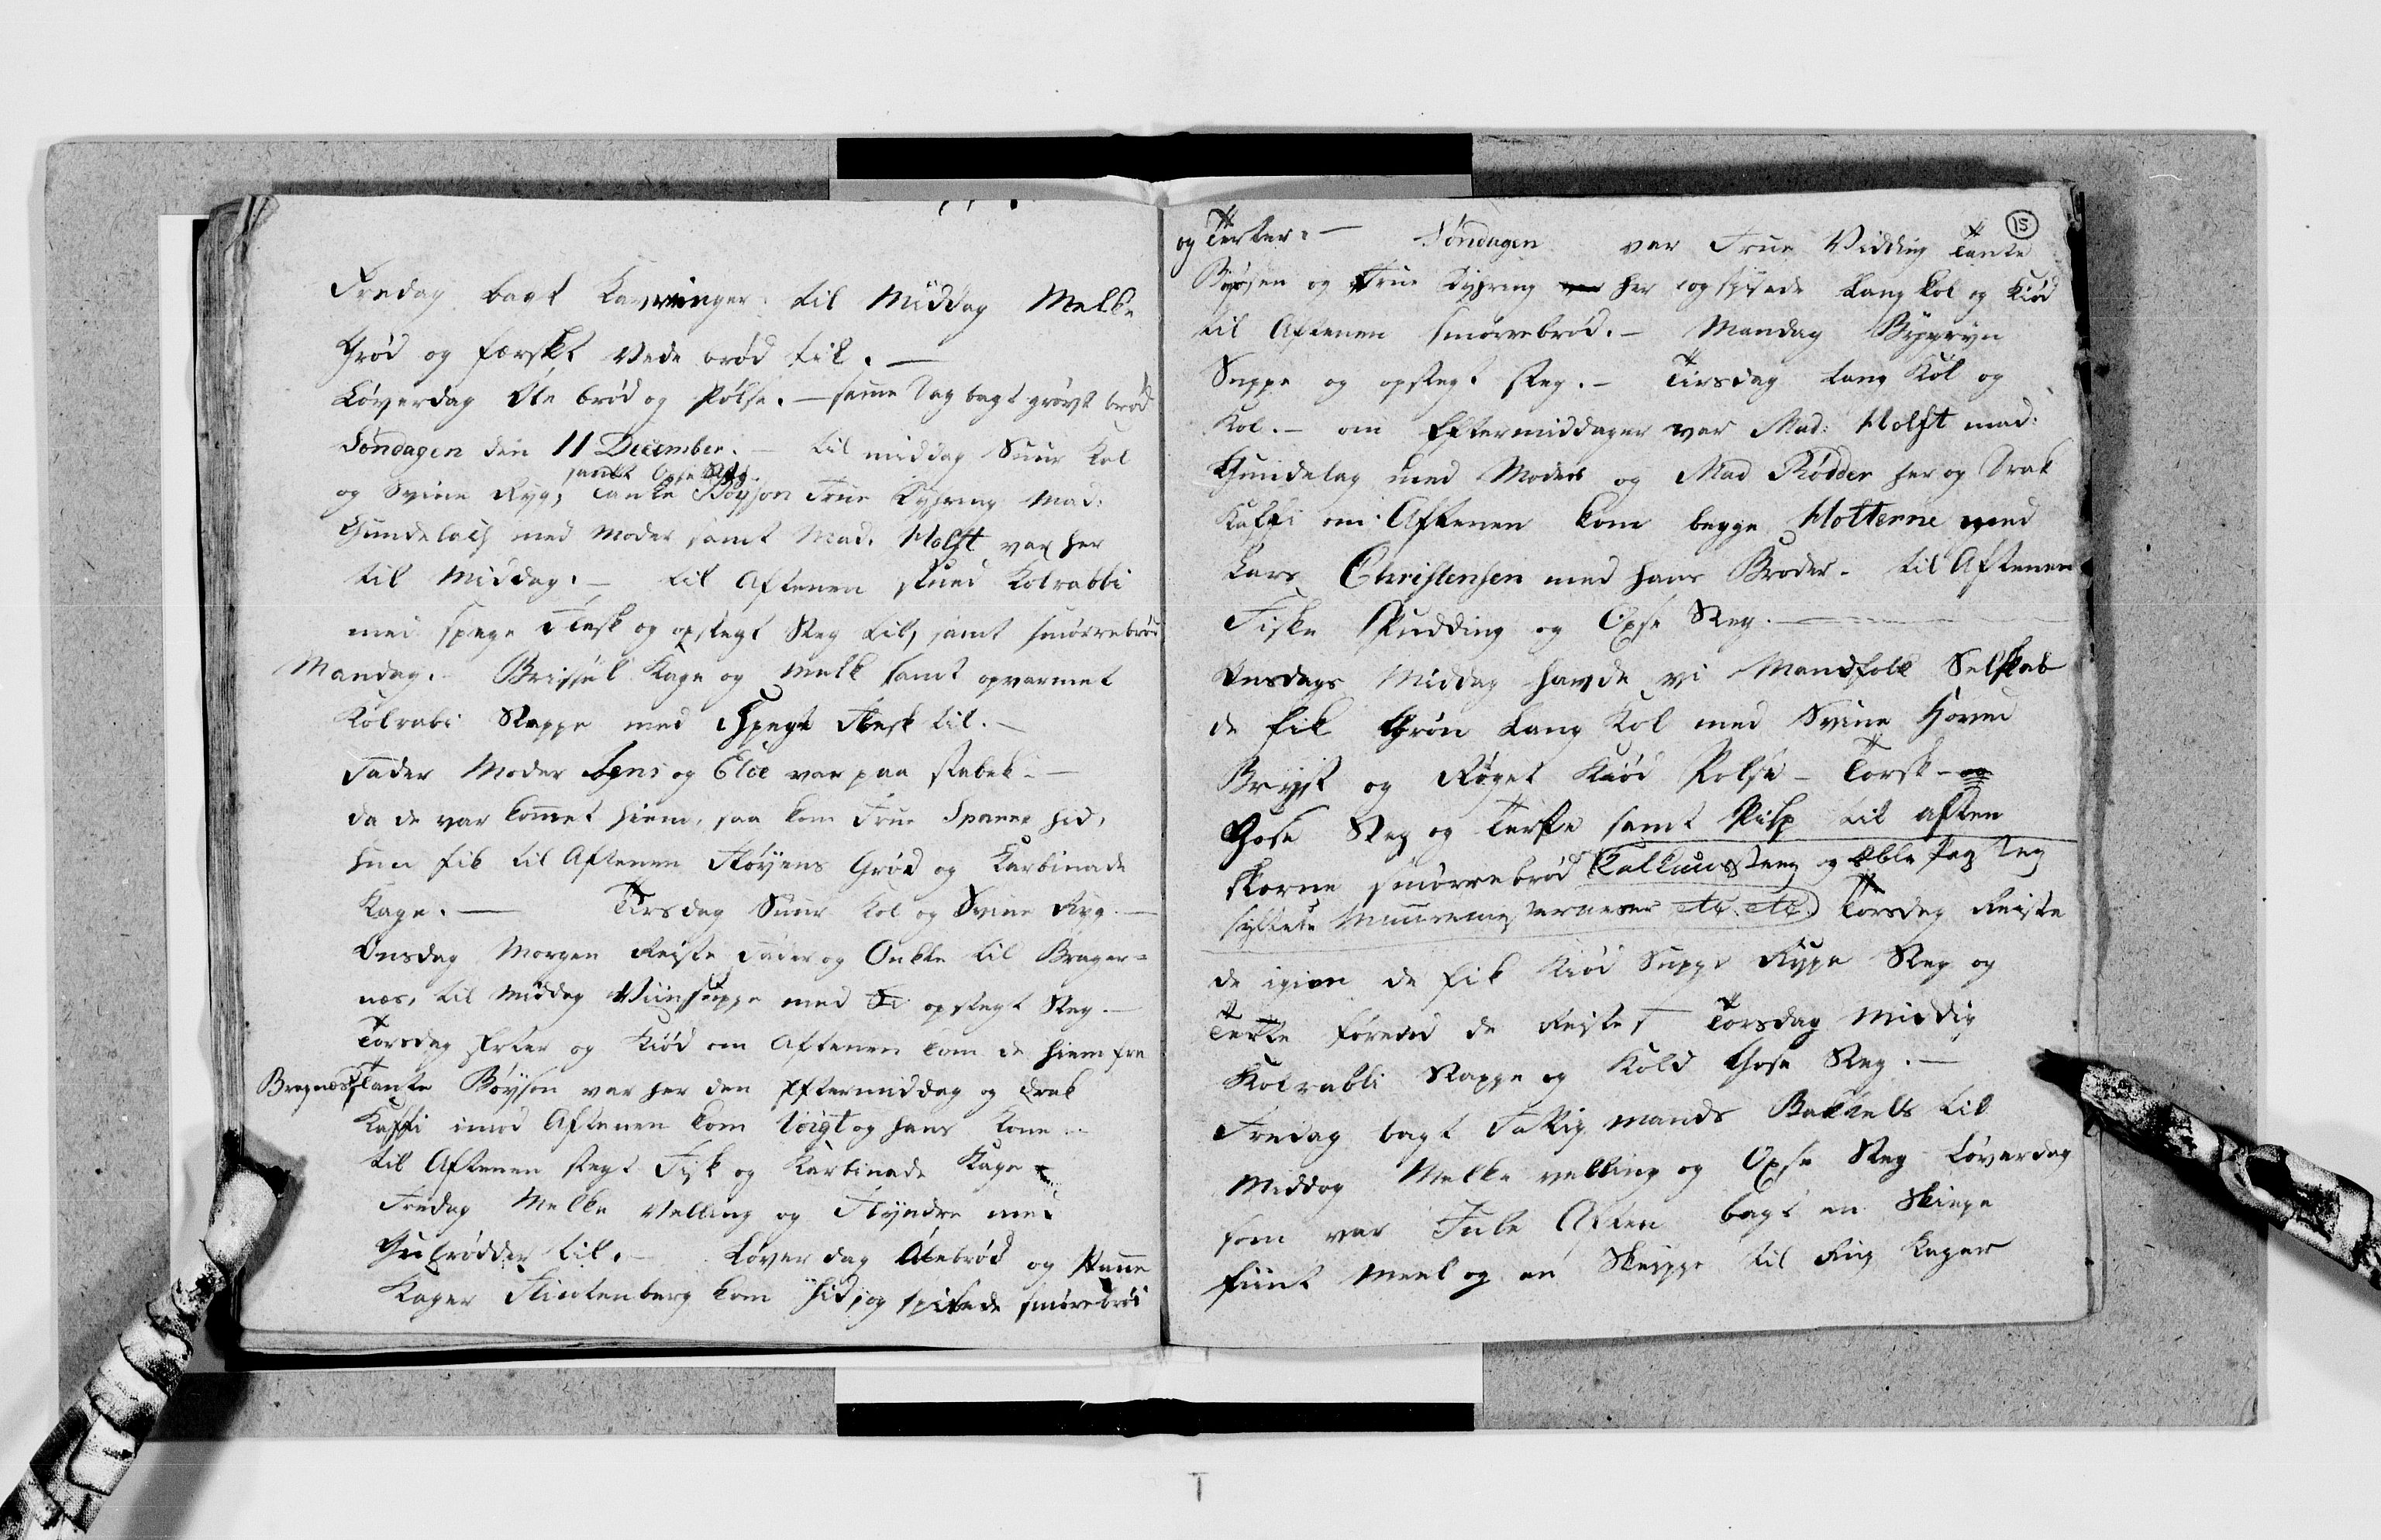 Fredag bagt Kavringer til Middag Melke
Grød og færskt Vede brød til. —
Løverdag Øle brød og Pølse. — samme Dag bagt grovt brød
Søndagen den 11 December. — til middag Suur Kol
samt Oxe Steg
og Svine Ryg, Tante Bøyson Frue Dyhreng Mad:
Gundelach med Moder samt Mad. Holst var her
til Middag. — til Aftenen stued Kolrabbi
med spege Flesk og opstegt Steg til, samt smørrebrød
Mandag. Kage og Melk samt opvarmet
Kolrabi Stappe med Speget Flesk til. —
Fader Moder Jens og Else var paa Stabek. —
da de var kommet hiem, saa kom Frue Spaner hid,
hun fik til Aftenen Fløyens Grød og Karbinade
Kage. — Tirsdag Suur Kol og Svine Ryg. —
Onsdag Morgen Reiste Fader og Onkle til Brager=
næs, til Middag Viinsuppe med opstegt Steg. —
Torsdag Erter og Kiød om Aftenen kom de hiem fra
Bragnæs, Tante Bøyson var her den Eftermiddag og Drak
Kaffi imod Aftenen kom Voigt og hans Kone —
til Aftenen stegt Fisk og Karbinade Kage
Fredag Melke Velling og Flyndre med
Gulrødder til. — Løverdag Ølebrød og Panne
Kager kom hid, og spisede smørrebrød
15
og Terter. — Søndagen var Frue Vidding Tante
Bøysen og Frue Dyhreng her og spisede Lang kol og Kiød
til Aftenen smørrebrød. — Mandag Byggryn
Suppe og opstegt steg. — Tirsdag Lang Kol og
Kol. — om Eftermiddagen var Mad: Holst mad:
Gundelag med Moder og Mad Rødder her og Drak
Kaffi om Aftenen kom begge Holterne med
Lars Christensen med hans Broder. til Aftenen
Fiske Pudding og Oxe Steg. —
Onsdags Middag havde vi Mandfolk Selskab
de fik Grøn Lang Kol med Svine Hoved
Bryst og Røget Kiød Pølse — Torsk — og
Gose Steg og Terte samt Risp til aften
skorne smørrebrød Kalkunsteeg og Eble
syltete etc. etc.) Torsdag Reiste
de igien de fik Kiød Suppe Rype Steg og
Terte førend de Reiste, Torsdag Middag
Kolrabbi Stappe og Kold Gose Steg. —
Fredag bagt Fattig mands Bakkels til
Middag Melke velling og Oxe Steg Løverdag
som var Jule Aften bagt en Skieppe
fiint Meel og en Skieppe til Rug Kager